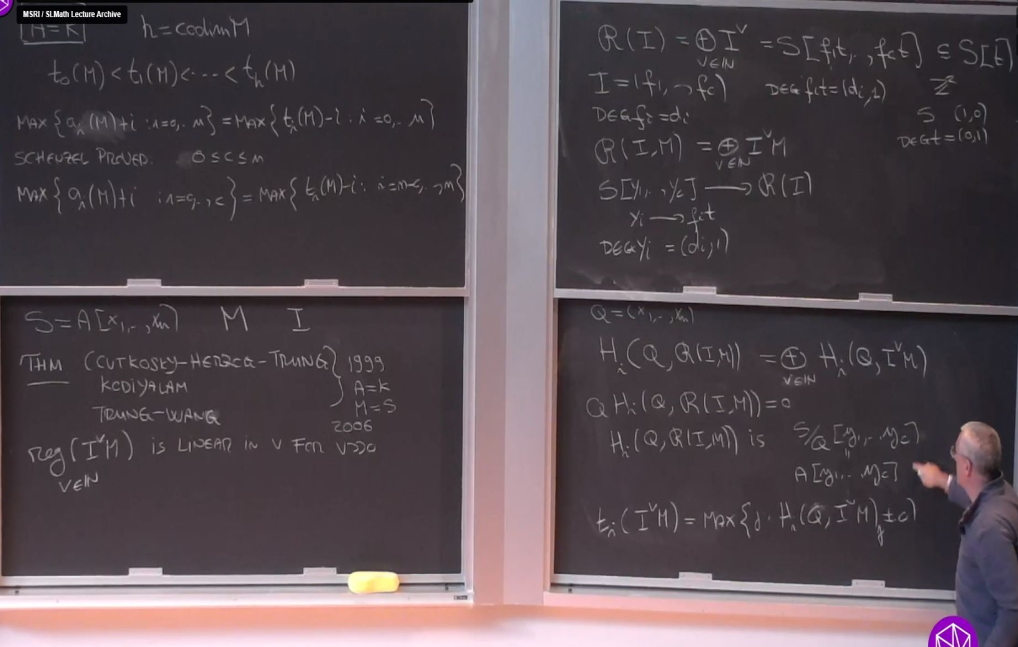 MSRI / SLMath Lecture Archive
A=K h=codim M
t₀(M) < t₁(M) < ... < tₕ(M)
MAX {aᵢ(M)+i : i=0,.. n} = MAX {tᵢ(M)-i : i=0,.. n}
SCHENZEL PROVED. 0≤c≤n
MAX {aᵢ(M)+i : i=0,..,c} = MAX {tᵢ(M)-i : i=n-c,..,n}
S=A[x₁,..,xₙ] M I
THM (CUTKOSKY-HERZOG-TRUNG } 1999
KODIYALAM A=K
M=S
TRUNG-WANG 2006
reg(IᵛM) IS LINEAR IN v FOR v>>0
v∈ℕ
R(I) = ⊕ Iᵛ = S[f₁t,..,f_c t] ⊆ S[t]
v∈ℕ
I=(f₁,..,f_c) DEG fᵢt=(dᵢ,1) ℤ²
DEG fᵢ=dᵢ S (1,0)
DEG t=(0,1)
R(I,M) = ⊕ IᵛM
v∈ℕ
S[y₁,..,y_c] → R(I)
yᵢ → fᵢt
DEG yᵢ = (dᵢ,1)
Q=(x₁,..,xₙ)
Hᵢ(Q,R(I,M)) = ⊕ Hᵢ(Q,IᵛM)
v∈ℕ
Q Hᵢ(Q,R(I,M))=0
Hᵢ(Q,R(I,M)) is S/Q[y₁,..,y_c]
=
A[y₁,..,y_c]
tᵢ(IᵛM) = MAX{j : Hᵢ(Q,IᵛM)ⱼ ≠0}